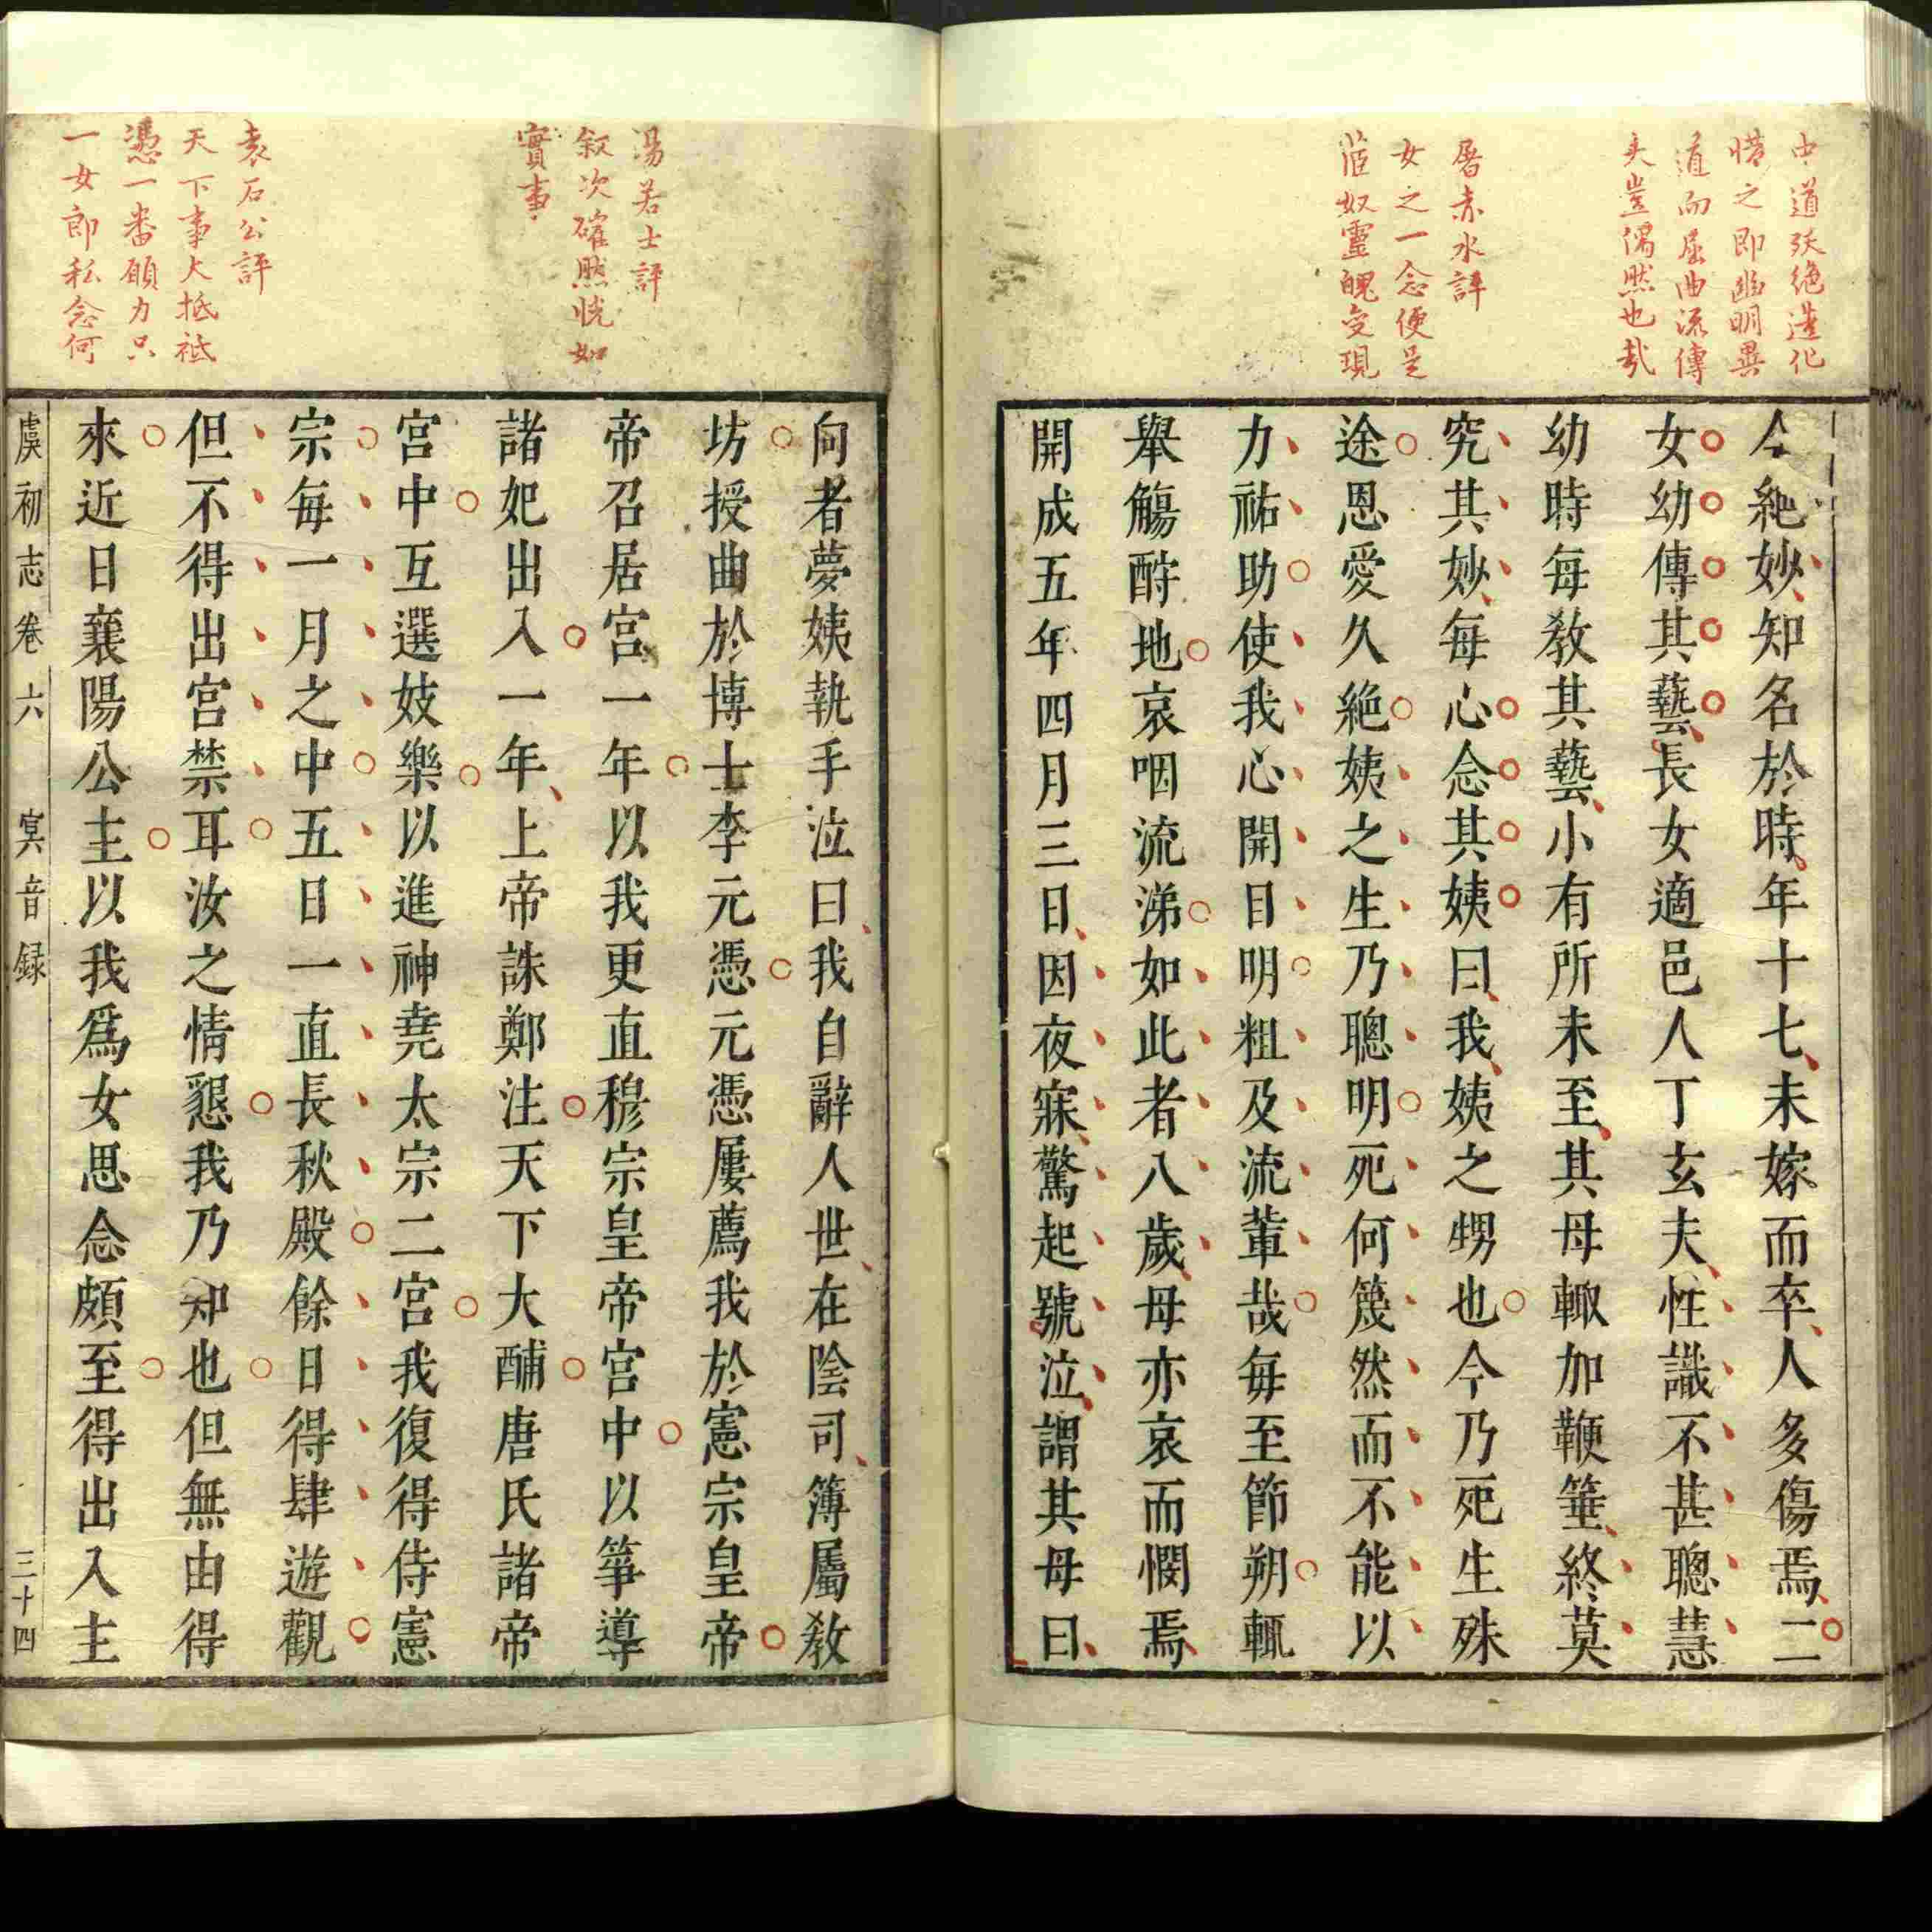 中道殀絶造化
惜之即幽明異
道而屈曲流傳
夫豈偶然也哉
屠赤水評
女之一念便是
菃奴靈魄變現
今絶妙知名於時年十七未嫁而卒人多傷焉二
女幼傳其藝長女適邑人丁玄夫性識不甚聰慧
幼時每教其藝小有所未至其母輙加鞭箠終莫
究其妙每心念其姨曰我姨之甥也今乃死生殊
途恩愛久絶姨之生乃聰明死何篾然而不能以
力祐助使我心開目明粗及流輩哉每至節朔輒
舉觴酹地哀咽流涕如此者八歲母亦哀而憫焉
開成五年四月三日因夜寐驚起號泣謂其母曰
湯若士評
叙次確然恍如
實事
袁石公評
天下事大抵祗
憑一番願力只
一女郎私念何
向者夢姨執手泣曰我自辭人世在陰司簿屬教
坊授曲於博士李元憑元憑屢薦我於憲宗皇帝
帝召居宮一年以我更直穆宗皇帝宮中以箏導
諸妃出入一年上帝誅鄭注天下大酺唐氏諸帝
宮中互選妓樂以進神堯太宗二宮我復得侍憲
宗每一月之中五日一直長秋殿餘日得肆遊觀
但不得出宮禁耳汝之情懇我乃知也但無由得
來近日襄陽公主以我爲女思念頗至得出入主
虞初志卷六 冥音録 三十四